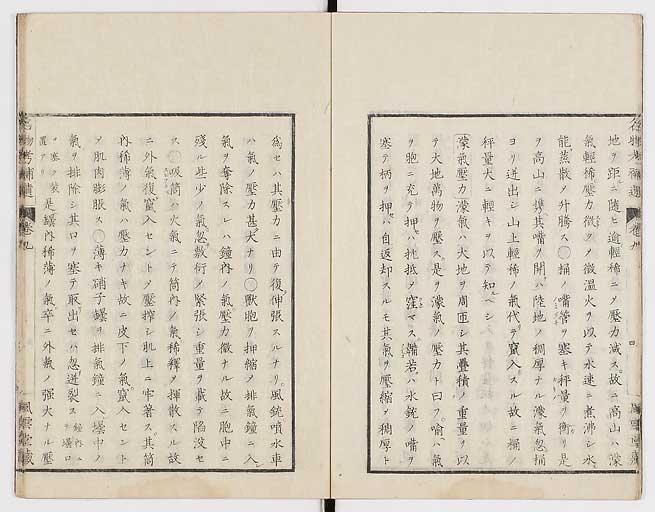 地ヲ距ニ隨ヒ逾輕稀ニメ壓力減ス故ニ高山ハ濛
氣輕稀壓力微クメ微温火ヲ以テ水速ニ煮沸シ水
能蒸散メ升騰ス〇桶ノ嘴管ヲ塞キ秤量ヲ衡リ是
ヲ高山ニ携其嘴ヲ開ハ陸地ノ稠厚ナル濛氣忽桶
ヨリ迸出シ山上輕稀ノ氣代テ竄入スル故ニ桶ノ
秤量大ニ輕キヲ以テ知ベシ
濛氣壓力濛氣ハ大地ヲ周匝シ其疊積ノ重量ヲ以
テ大地萬物ヲ壓ス是ヲ濛氣ノ壓力ト曰フ喻ハ氣
ヲ胞ニ充テ押ハ抵ヲ窪マス鞴若ハ水銃ノ嘴ヲ
塞テ柄ヲ押ハ自返却スルモ其氣ヲ壓縮メ稠厚ト
爲セハ其壓力ニ由テ復伸張スルナリ風銃噴水車
ハ氣ノ壓力甚大ナリ〇獸胞ヲ押縮メ排氣鐘ニ入
氣ヲ奪除スレハ鐘内ノ氣壓力微ナル故ニ胞中ニ
殘ル些少ノ氣忽敷衍ノ緊張シ重量ヲ載テ陷没セ
ス〇吸筒ハ火氣ニテ筒内ノ氣稀釋ヲ揮散スル故
ニ外氣復竄入セントメ壓搾シ肌上ニ牢著ス其筒
内稀薄ノ氣ハ壓力ナキ故ニ皮下ノ氣竄入セント
メ肌肉膨脹ス〇薄キ硝子罎ヲ排氣鐘ニ入罎中ノ
氣ヲ排除シ其口ヲ塞テ取出セハ忽迸裂ス
是罎内稀薄ノ氣卒ニ外氣ノ強大ナル壓
風雲堂藏